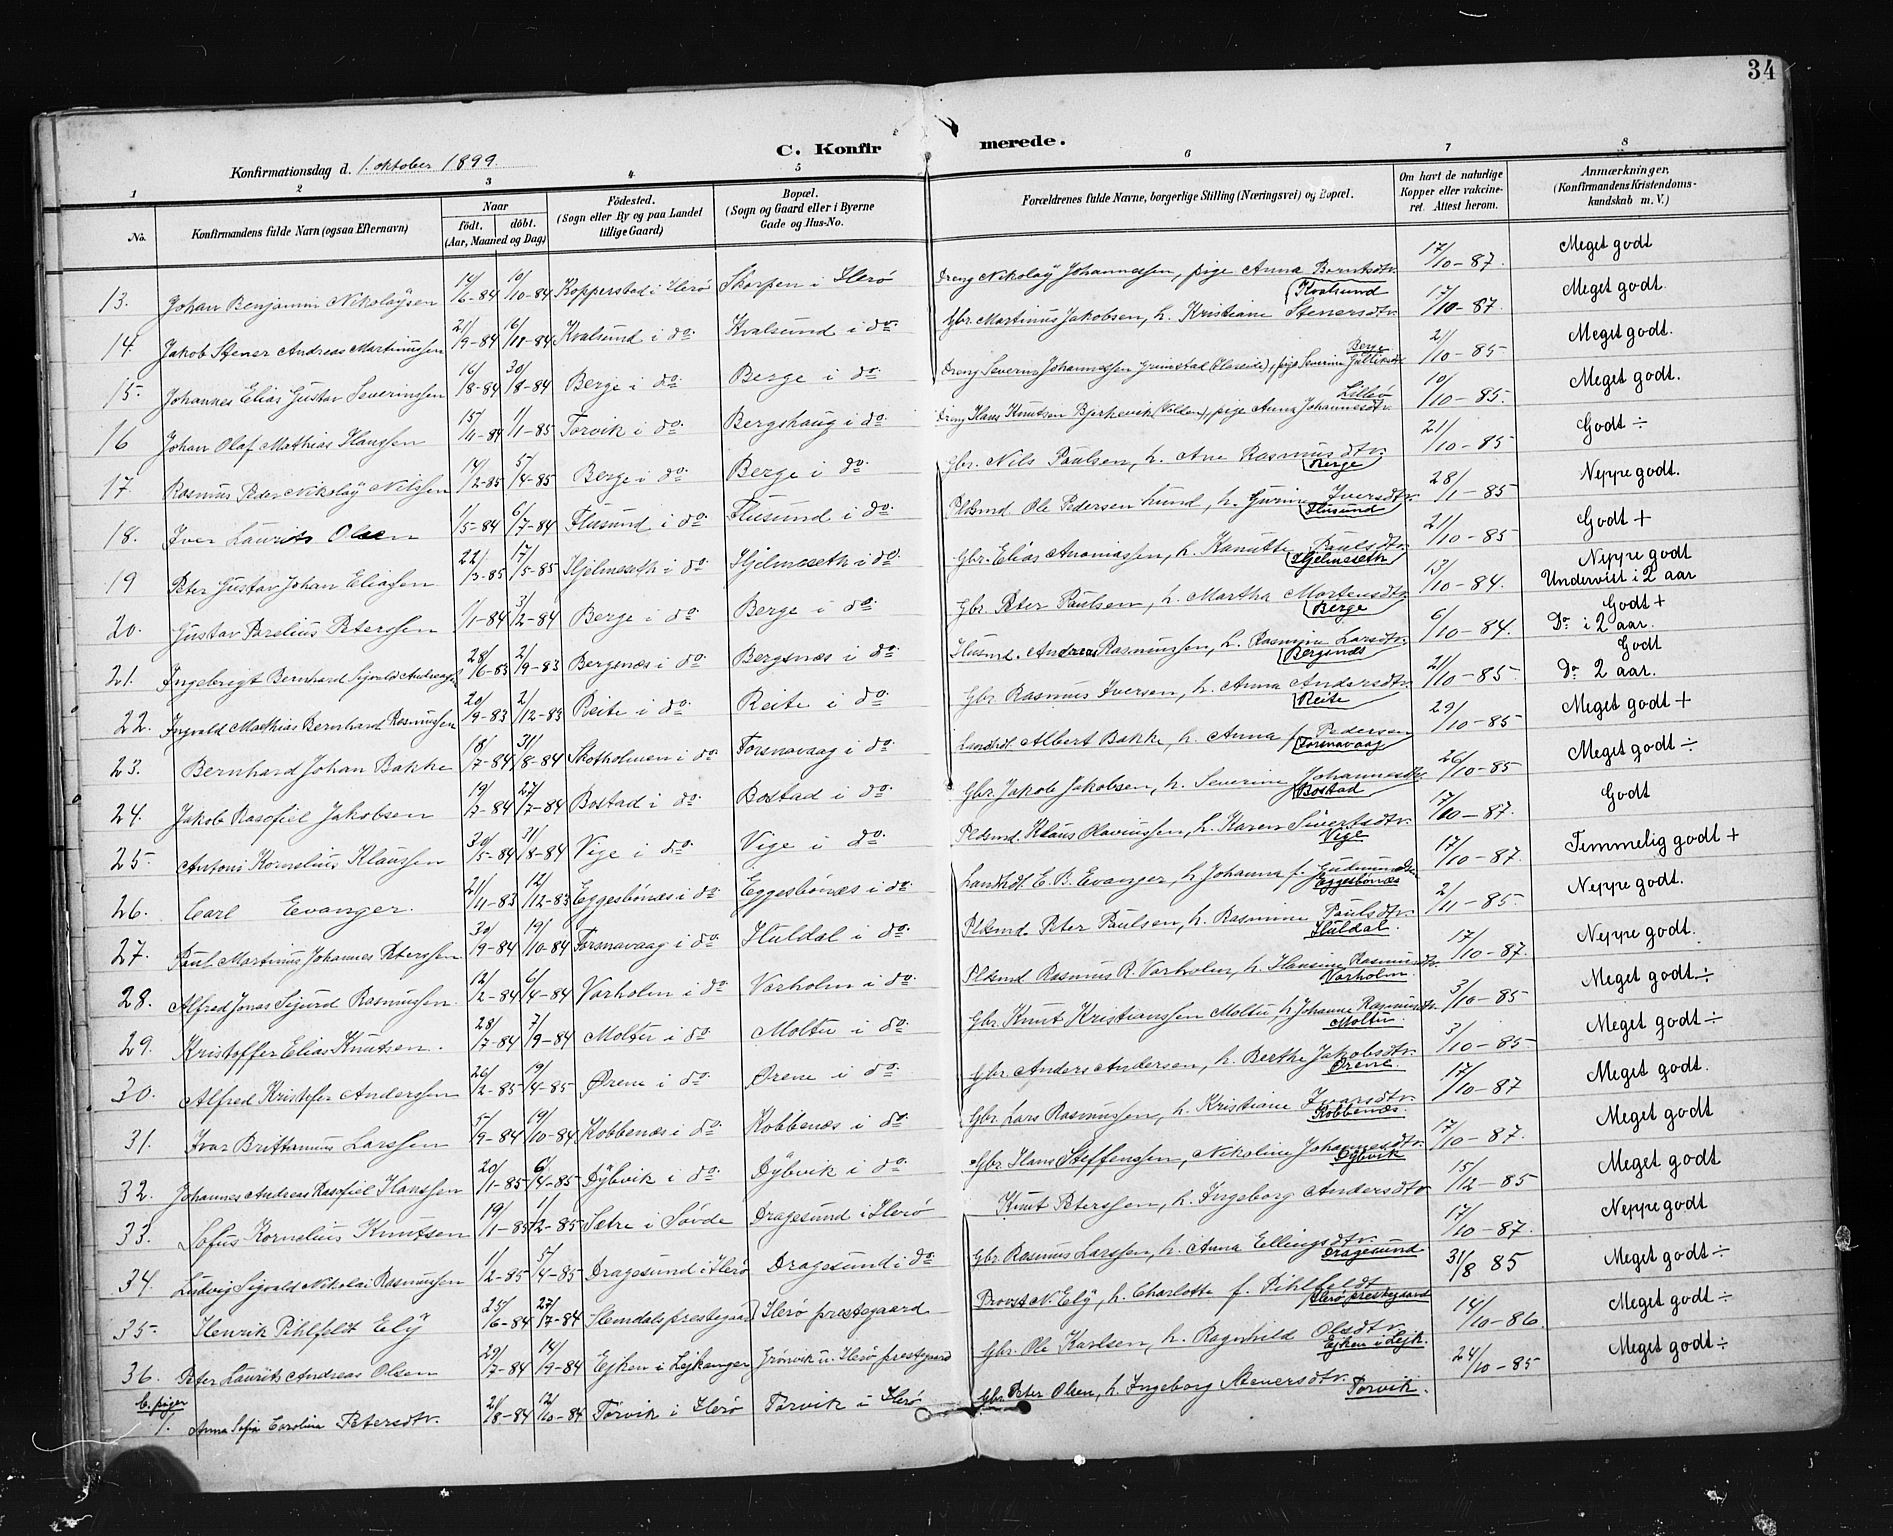 34
C. Konfirmerede.
Konfirmationsdag d. 1. oktober 1899.
1 2 3 4 5 6 7 8
No. Konfirmandens fulde Navn (ogsaa Efternavn) Naar født. døbt. (Aar, Maaned og Dag) Fødested. (Sogn eller By og paa Landet tillige Gaard) Bopæl. (Sogn og Gaard eller i Byerne Gade og Hus-No. Forældrenes fulde Navne, borgerlige Stilling (Næringsvei) og Bopæl. Om havt de naturlige Kopper eller vakcineret. Attest herom. Anmærkninger, (Konfirmandens Kristendomskundskab m. V.)
13. Johan Benjamin Nikolaÿsen 14/6-84 19/10-84 Koppersbad i Herø Skorpen i Herø Dreng Nikolaÿ Johannessen, pige Anna Berntsdtr. Kvalsund 17/10-87. Meget godt
14. Jakob Stener Andreas Martinussen 21/9-84 16/11-84 Kvalsund i do. Kvalsund i do. Gbr. Martinus Jakobsen, h. Kristiane Stenersdtr. 17/10-87. Meget godt.
15. Johannes Elias Gustav Severinssen 16/8-84 30/8-84 Berge i do. Berge i do. Dreng Severin Johannessen Grimstad (Hareide), pige Severine Berge 2/10-85 Meget godt.
16 Johan Olaf Mathias Hanssen 15/11-84 1/1-85 Torvik i do. Bergshaug i do. Dreng Hans Knutsen Bjerkevik (Volden), pige Anna Johannesdtr. Lillø 10/10-85. Meget godt.
17. Rasmus Peder Nikolaÿ Nilssen 14/2-85 5/4-85 Berge i do. Berge i do. Gbr. Nils Paulsen, h. Ane Rasmusdtr. Berge 21/10-85 Godt ÷
18. Iver Laurits Olsen 1/5-84 6/7-84 Flusund i do. Flusund i do. Pldsmd. Ole Pedersen Lund, h. Gurine Iversdtr. Flusund 28/1-85 Neppe godt.
19 Peter Gustav Johan Eliassen 22/3-85 17/5-85 Hjelmeseth i do. Hjelmeseth i do. Gbr. Elias Ananiassen, h. Kanutte Paulsdtr. Hjelmeseth 21/10-85 Godt +
20. Gustav Parelius Peterssen 1/11-84 3/2-84 Berge i do. Berge i do. Gbr. Peter Paulsen, h. Martha Mortensdtr. Berge 13/10-84. Neppe godt Undervist i 2 aar
21. Ingebrigt Bernhard Sigvald Andreassen 28/6-83 2/9-83 Bergsnæs i do. Bergsnæs i do. Husmd. Andreas Rasmussen, h. Rasmine Larsdtr. Bergsnæs 6/10-84. Godt + Do. i 2 aar.
22. Ingvald Mathias Bernhard Rasmussen 20/9-83 2/12-83 Reite i do. Reite i do. Gbr. Rasmus Iversen, h. Anna Andersdtr. Reite 21/10-85 Godt Do. 2 aar.
23. Bernhard Johan Bakke 18/7-84 31/8-84 Skotholmen i do. Fosnavaag i do. Landhdl. Albert Bakke, h. Anna f. Pedersen Fosnavaag 29/10-85 Meget godt +
24. Jakob Rasofiel Jakobsen 19/2-84 27/7-84 Bostad i do. Bostad i do. Gbr. Jakob Jakobsen, h. Severine Johannesdtr. Bostad 26/10-85 Meget godt ÷
25. Antoni Kornelius Klaussen 30/5-84 31/8-84 Vige i do. Vige i do. Pldsmd. Klaus Olavinussen, h. Karen Sivertsdtr. Vige 17/10-87. Godt
26. Carl Evanger. 21/11-83 12/12-83 Eggesbönæs i do. Eggesbönæs i do. Landhdl. E. B. Evanger, h Johanna f. Eggesbönæs 17/10-87. Temmelig godt +
27. Paul Martinus Johannes Peterssen 30/9-84 19/10-84 Fosnavaag i do. Huldal i do. Pldsmd. Peter Paulsen, h. Rasmine Paulsdtr. Huldal. 2/11-85. Neppe godt.
28. Alfred Jonas Sigurd Rasmussen. 12/2-84 6/4-84 Varholm i do. Varholm i do. Pldsmd Rasmus R. Varholm, h. Hansine Rasmusdtr. Varholm 17/10-87. Neppe godt.
29. Kristoffer Elias Knutsen. 28/7-84 7/9-84 Moltu i do. Moltu i do. Gbr. Knut Kristianssen Moltu, h. Johanne Rasmusdtr. Moltu. 3/10-85 Meget godt ÷
30. Alfred Kristofer Anderssen 26/2-85 19/4-85 Ørene i do. Ørene i do. Gbr. Anders Andersen, h. Berthe Jakobsdtr. Ørene 3/10-85. Meget godt ÷
31. Ivar Brittanius Larssen 5/9-84 19/10-84 Kobbenæs i do. Kobbenæs i do. Gbr. Lars Rasmussen, h. Kristiane Ivarsdtr. Kobbenæs. 17/10-87 Meget godt.
32. Johannes Andreas Rasofiel Hanssen 20/1-85 6/4-85 Dÿbvik i do. Dÿbvik i do. Gbr. Hans Steffenssen, Nikoline Johannesdtr. Dÿbvik 17/10-87. Meget godt
33. Sofus Kornelius Knutsen 19/1-85 1/2-85 Sætre i Søvde Dragesund i Herø Knut Peterssen, h. Ingeborg Andersdtr. 15/12-85 Meget godt
34. Ludvig Sigvald Nikolai Rasmussen 1/2-85 5/4-85 Dragesund i Herø Dragesund i do. Gbr. Rasmus Larssen, h. Anna Ellingsdtr. Dragesund 17/10-87. Neppe godt
35. Henrik Pihlfeldt Elÿ 25/6-84 27/7-84 Stemdals prestegaard Herø prestegaard Provst N. Elÿ, h. Charlotte f. Pihlfeldt Herø prestegaard 31/8 85 Meget godt ÷
36. Peter Laurits Andreas Olsen 29/7-84 14/9-84 Ejken i Lejkanger Grönvik u. Herø prestegaard Gbr. Ole Karlsen, h. Ragnhild Olsdtr. Ejken i Lejk. 14/10-86. Meget godt ÷
b. piger
1. Anna Sofia Carolina Petersdtr. 21/8-84 12/10-84 Torvik i Herø Torvik i Herø Gbr Peter Olsen, h. Ingeborg Stenersdtr. Torvik. 24/10-85 Meget godt ÷